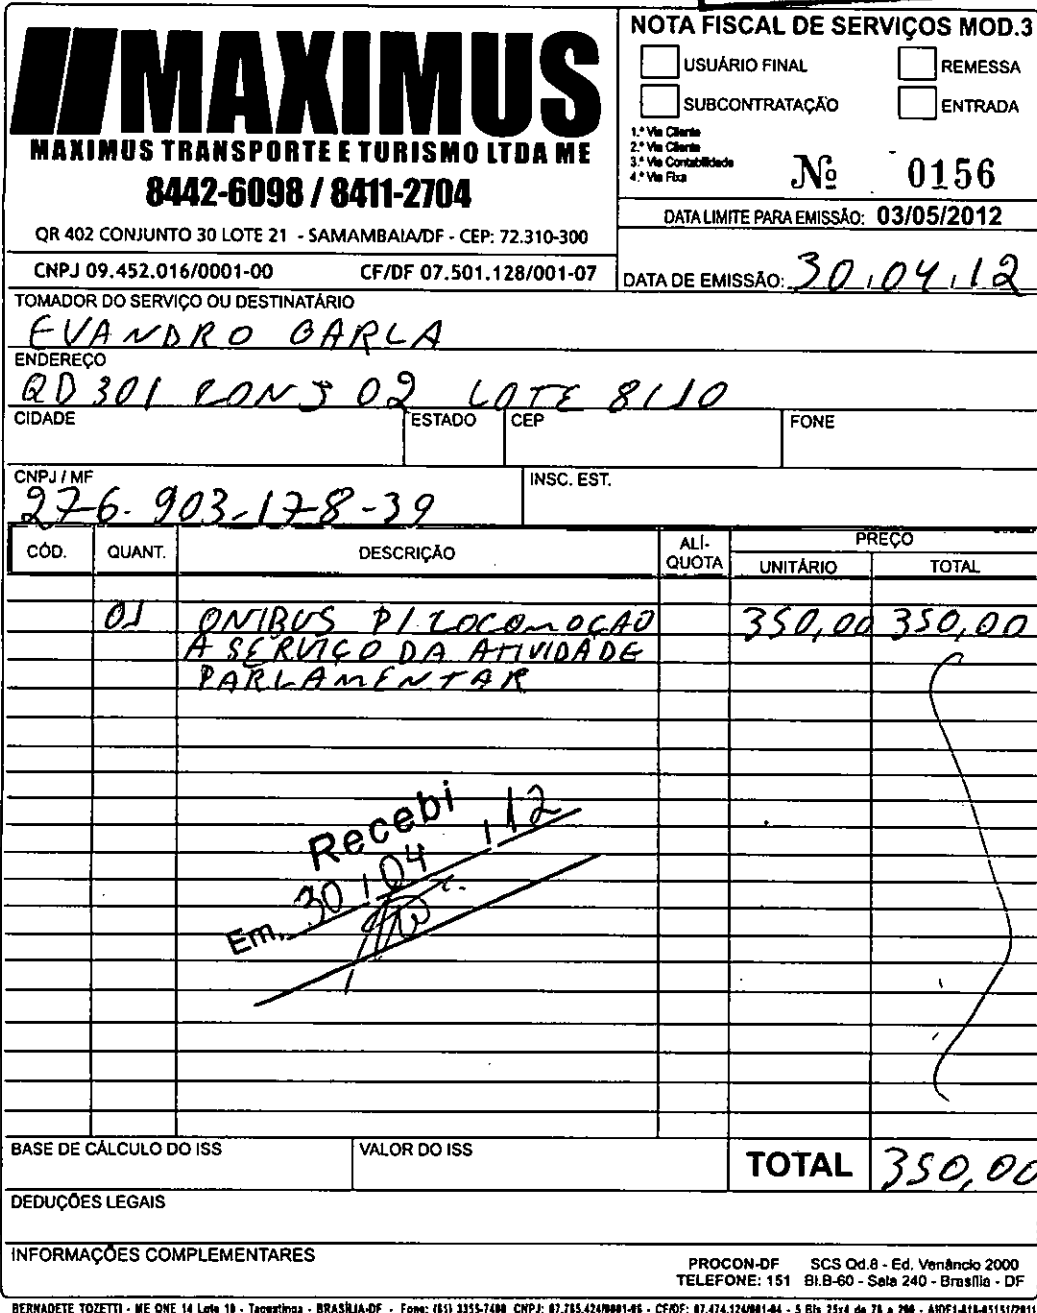 MAXIMUS
MAXIMUS TRANSPORTE E TURISMO LTDA ME
8442-6098 / 8411-2704
QR 402 CONJUNTO 30 LOTE 21 - SAMAMBAIA/DF - CEP: 72.310-300
CNPJ 09.452.016/0001-00 CF/DF 07.501.128/001-07
NOTA FISCAL DE SERVIÇOS MOD.3
USUÁRIO FINAL REMESSA
SUBCONTRATAÇÃO ENTRADA
1.ª Via Cliente
2.ª Via Cliente
3.ª Via Contabilidade
4.ª Via Fixa
Nº 0156
DATA LIMITE PARA EMISSÃO: 03/05/2012
DATA DE EMISSÃO: 30,04,12
TOMADOR DO SERVIÇO OU DESTINATÁRIO
EVANDRO GARLA
ENDEREÇO
QD 301 CONJ 02 LOTE 8/10
CIDADE ESTADO CEP FONE
CNPJ / MF INSC. EST.
276.903-178-39
CÓD. QUANT. DESCRIÇÃO ALÍ-QUOTA PREÇO
UNITÁRIO TOTAL
01 ONIBUS P/ LOCOMOÇAO 350,00 350,00
A SERVIÇO DA ATIVIDADE
PARLAMENTAR
Recebi
Em, 30/04/12
BASE DE CÁLCULO DO ISS VALOR DO ISS TOTAL 350,00
DEDUÇÕES LEGAIS
INFORMAÇÕES COMPLEMENTARES
PROCON-DF SCS Qd.8 - Ed. Venâncio 2000
TELEFONE: 151 Bl.B-60 - Sala 240 - Brasília - DF
BERNADETE TOZETTI - ME QNE 14 Lote 10 - Taguatinga - BRASÍLIA-DF - Fone: (61) 3355-7400